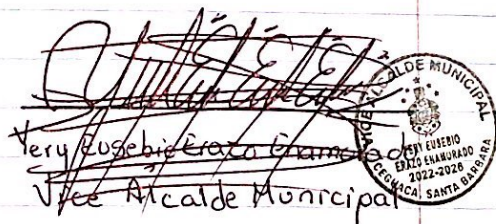 Yery Eusebio Erazo Enamorado
Vice Alcalde Municipal
VICE ALCALDE MUNICIPAL
YERY EUSEBIO
ERAZO ENAMURADO
2022-2026
CEGUACA, SANTA BARBARA